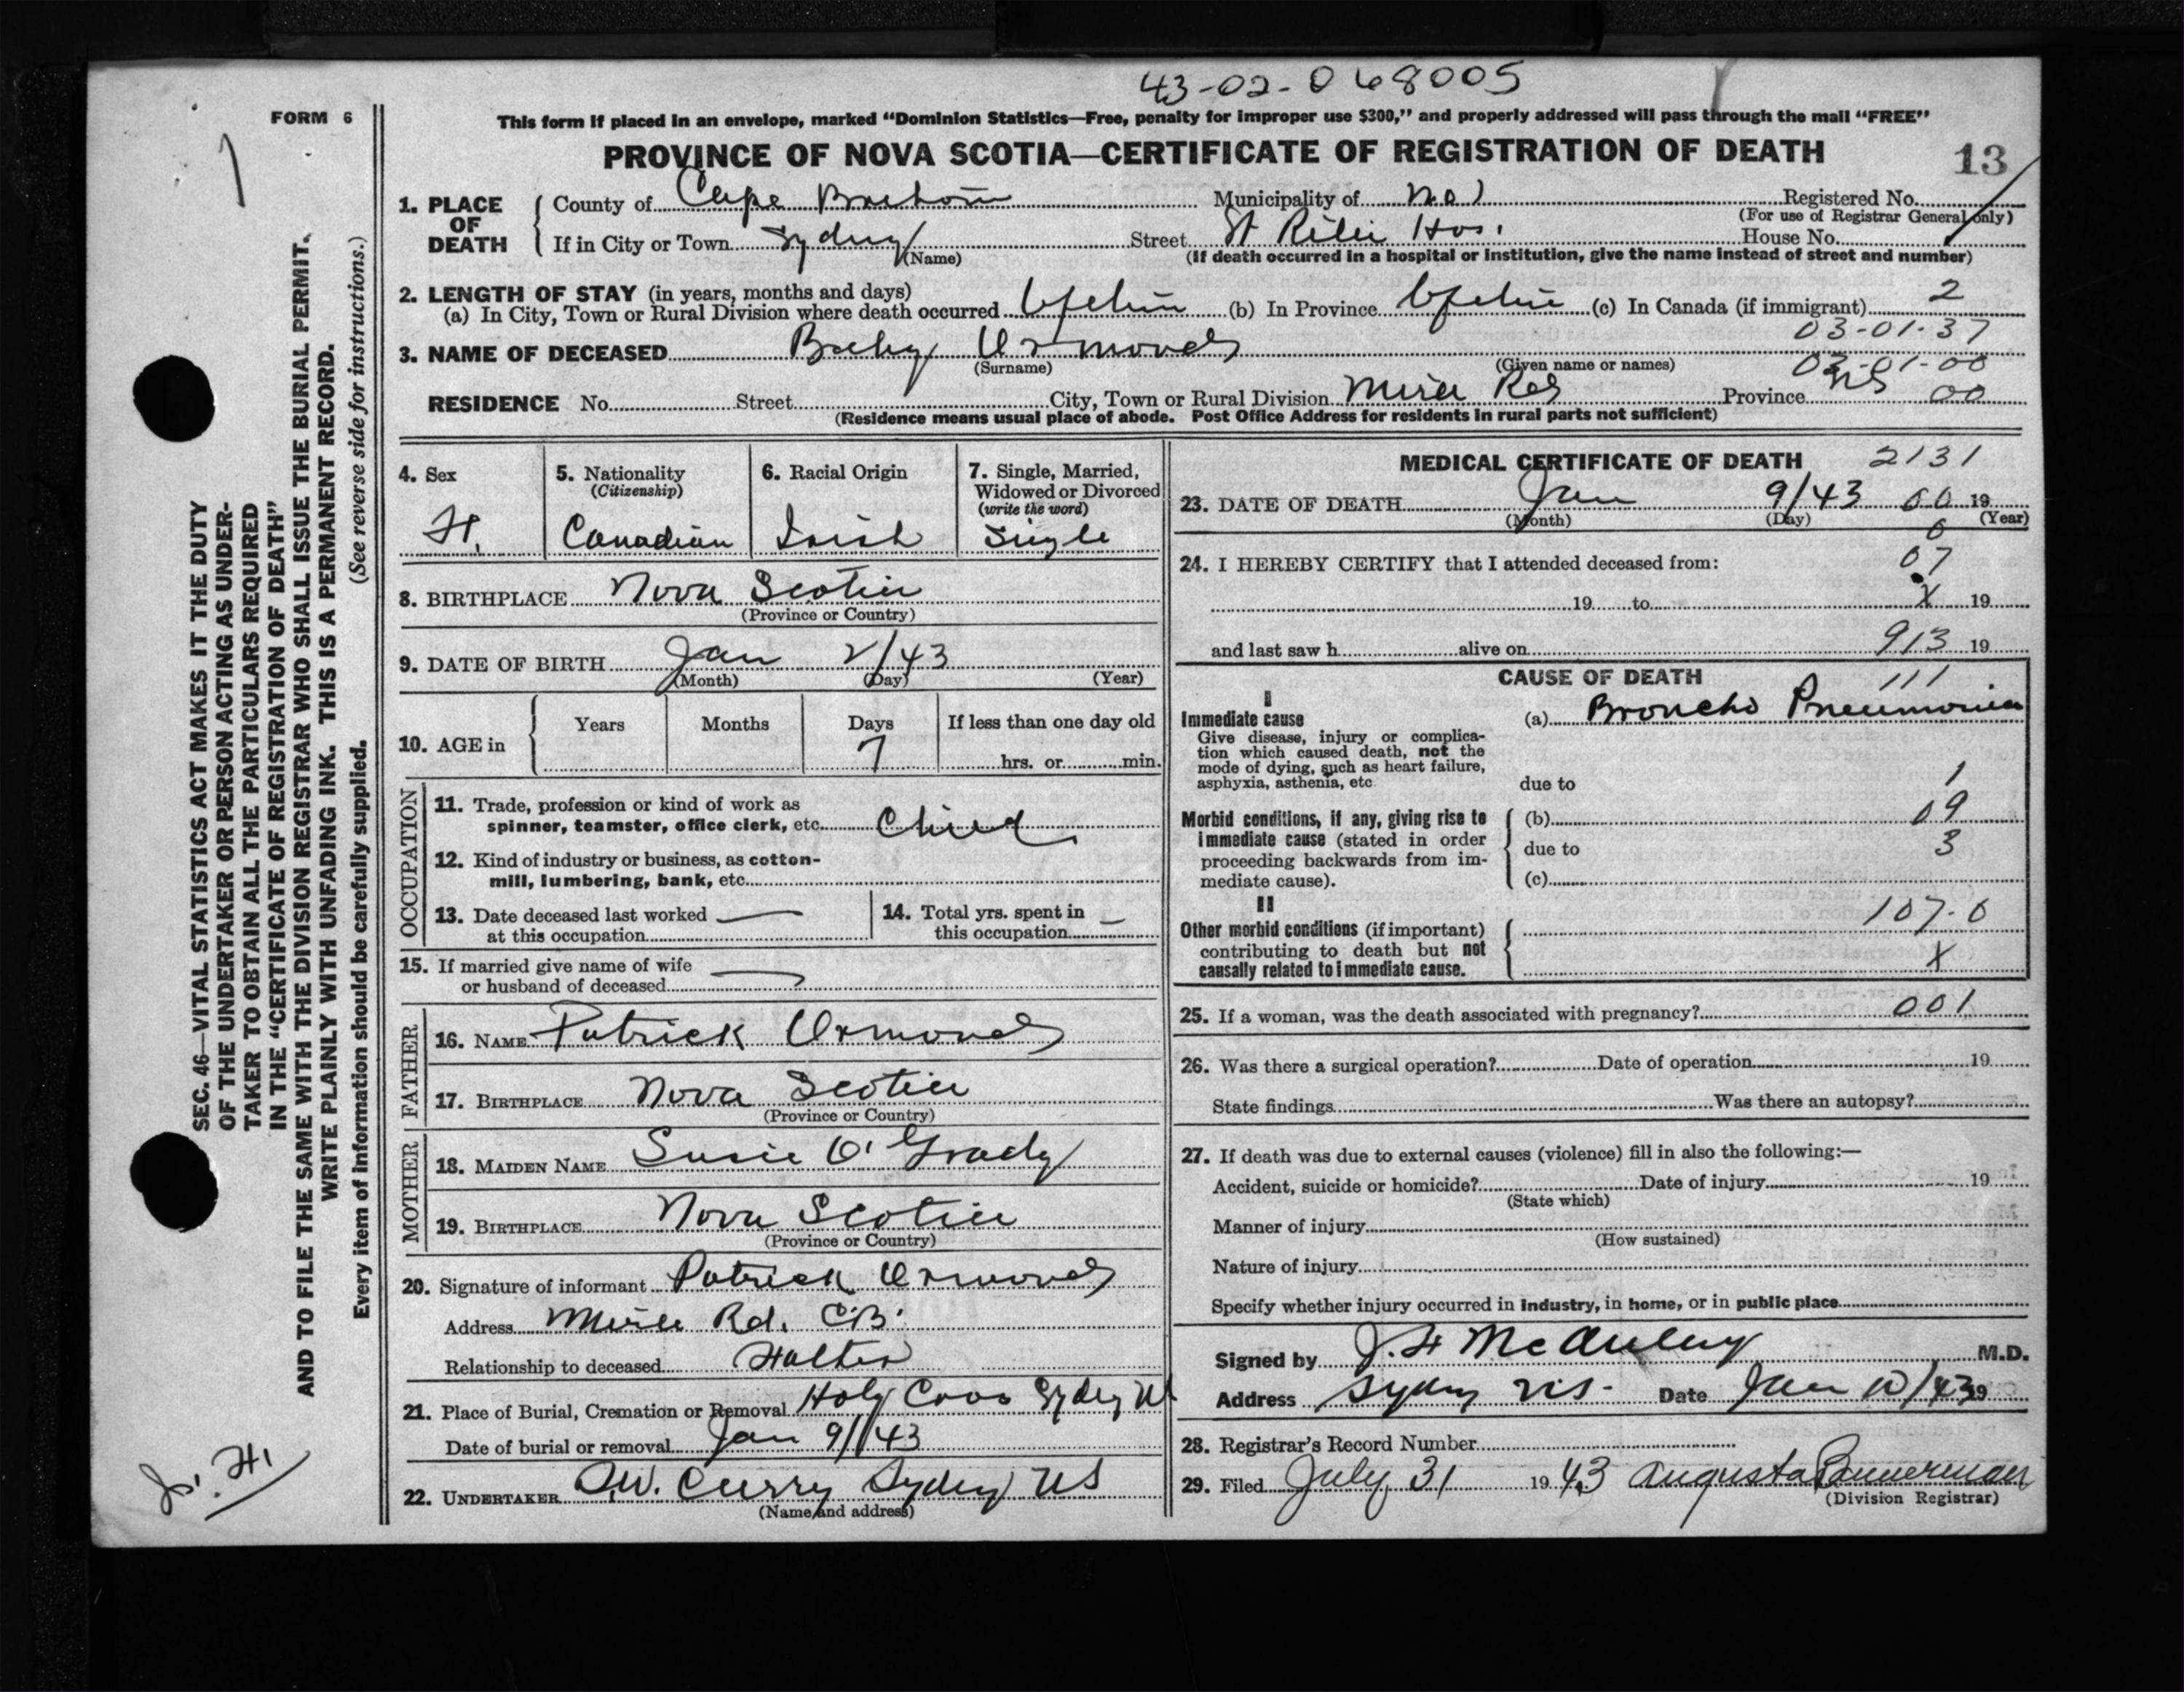 43-02-068005
FORM 6
This form if placed in an envelope, marked "Dominion Statistics—Free, penalty for improper use $300," and properly addressed will pass through the mail "FREE"
PROVINCE OF NOVA SCOTIA—CERTIFICATE OF REGISTRATION OF DEATH 13
1. PLACE OF DEATH
County of Cape Breton Municipality of No 1 Registered No.
(For use of Registrar General only)
If in City or Town Sydney Street St Rita Hos. House No.
(Name) (If death occurred in a hospital or institution, give the name instead of street and number)
2. LENGTH OF STAY (in years, months and days) 2
(a) In City, Town or Rural Division where death occurred Lifetime (b) In Province Lifetime (c) In Canada (if immigrant)
03-01-37
3. NAME OF DECEASED Baby Ormond
(Surname) (Given name or names) 03-01-00
RESIDENCE No. Street City, Town or Rural Division Mira Rd Province NS 00
(Residence means usual place of abode. Post Office Address for residents in rural parts not sufficient)
4. Sex F.
5. Nationality (Citizenship) Canadian
6. Racial Origin Irish
7. Single, Married, Widowed or Divorced (write the word) Single
8. BIRTHPLACE Nova Scotia
(Province or Country)
9. DATE OF BIRTH Jan 2/43
(Month) (Day) (Year)
10. AGE in Years Months Days If less than one day old
7 hrs. or min.
OCCUPATION
11. Trade, profession or kind of work as
spinner, teamster, office clerk, etc. Child
12. Kind of industry or business, as cotton-
mill, lumbering, bank, etc.
13. Date deceased last worked —
at this occupation
14. Total yrs. spent in —
this occupation
15. If married give name of wife —
or husband of deceased
FATHER
16. NAME Patrick Ormond
17. BIRTHPLACE Nova Scotia
(Province or Country)
MOTHER
18. MAIDEN NAME Susie O'Grady
19. BIRTHPLACE Nova Scotia
(Province or Country)
20. Signature of informant Patrick Ormond
Address Mira Rd. C.B.
Relationship to deceased Father
21. Place of Burial, Cremation or Removal Holy Cross Sydney NS
Date of burial or removal Jan 9/43
22. UNDERTAKER W. Curry Sydney NS
(Name and address)
MEDICAL CERTIFICATE OF DEATH 2131
23. DATE OF DEATH Jan 9/43 00 19
(Month) (Day) (Year)
0
24. I HEREBY CERTIFY that I attended deceased from: 07
19 to X 19
and last saw h alive on 913 19
CAUSE OF DEATH 111
I
Immediate cause (a) Broncho Pneumonia
Give disease, injury or complica-
tion which caused death, not the
mode of dying, such as heart failure,
asphyxia, asthenia, etc. due to 1
Morbid conditions, if any, giving rise to (b) 09
immediate cause (stated in order due to 3
proceeding backwards from im-
mediate cause). (c)
II
Other morbid conditions (if important) 107-0
contributing to death but not
causally related to immediate cause. X
25. If a woman, was the death associated with pregnancy? 001
26. Was there a surgical operation? Date of operation 19
State findings Was there an autopsy?
27. If death was due to external causes (violence) fill in also the following:—
Accident, suicide or homicide? Date of injury 19
(State which)
Manner of injury
(How sustained)
Nature of injury
Specify whether injury occurred in industry, in home, or in public place
Signed by J. H McAuley M.D.
Address Sydney NS. Date Jan 10/43 19
28. Registrar's Record Number
29. Filed July 31 1943 Augusta Bannerman
(Division Registrar)
SEC. 46—VITAL STATISTICS ACT MAKES IT THE DUTY
OF THE UNDERTAKER OR PERSON ACTING AS UNDER-
TAKER TO OBTAIN ALL THE PARTICULARS REQUIRED
IN THE "CERTIFICATE OF REGISTRATION OF DEATH"
AND TO FILE THE SAME WITH THE DIVISION REGISTRAR WHO SHALL ISSUE THE BURIAL PERMIT.
WRITE PLAINLY WITH UNFADING INK. THIS IS A PERMANENT RECORD.
Every item of information should be carefully supplied. (See reverse side for instructions.)